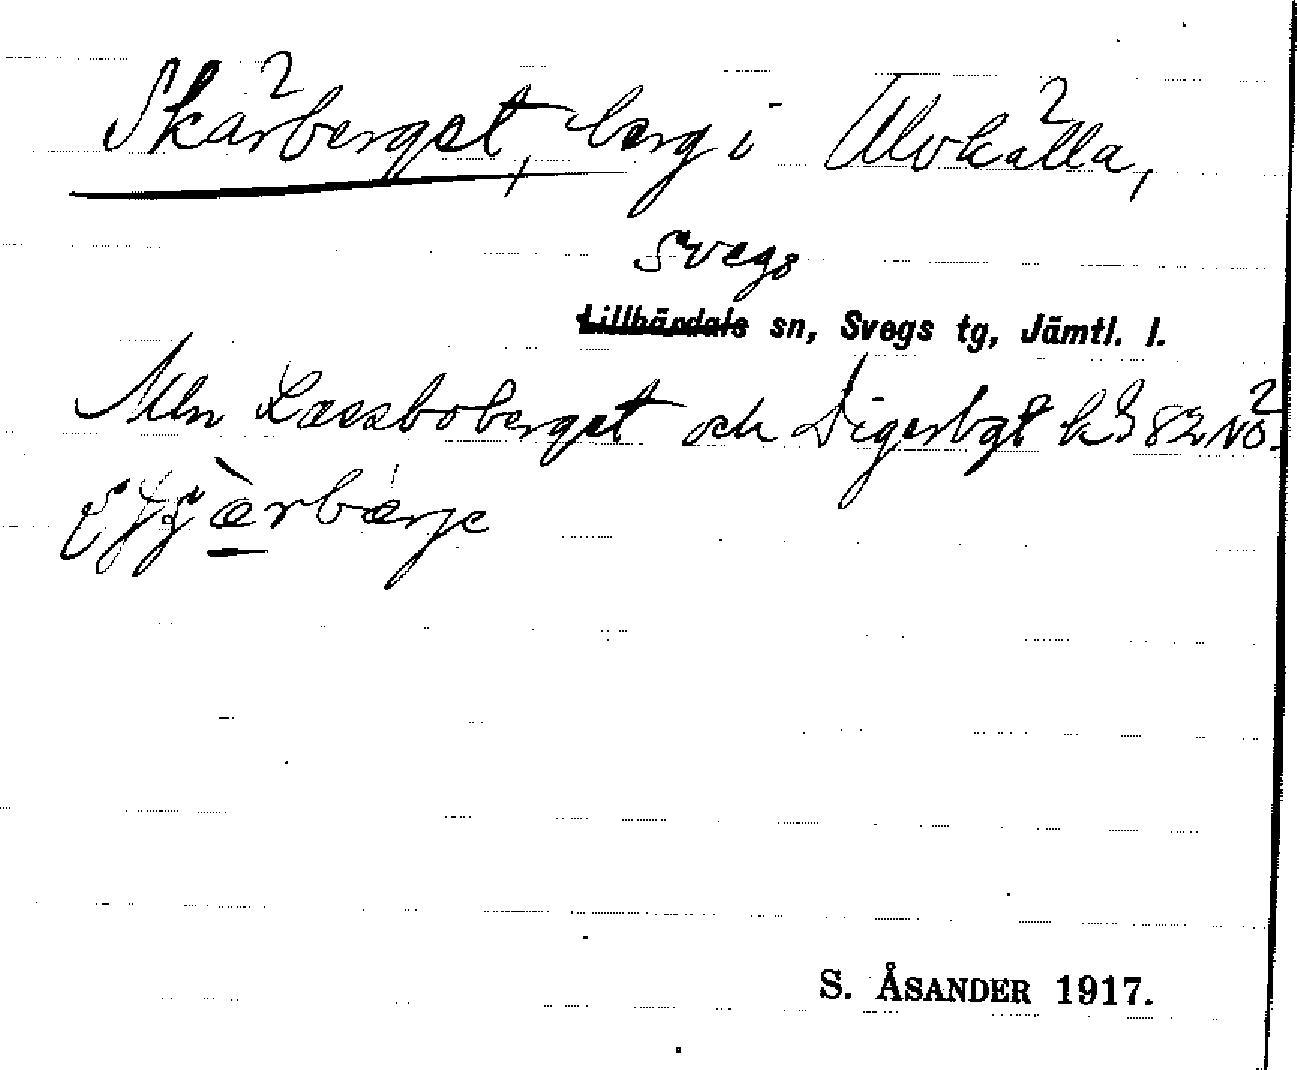 Skärberget, berg i Ulvkälla,
Svegs
Lillhärdals sn, Svegs tg, Jämtl. l.
Mln Lassboberget och Digerbgt k 82 NÖ.
ærbærje
S. ÅSANDER 1917.